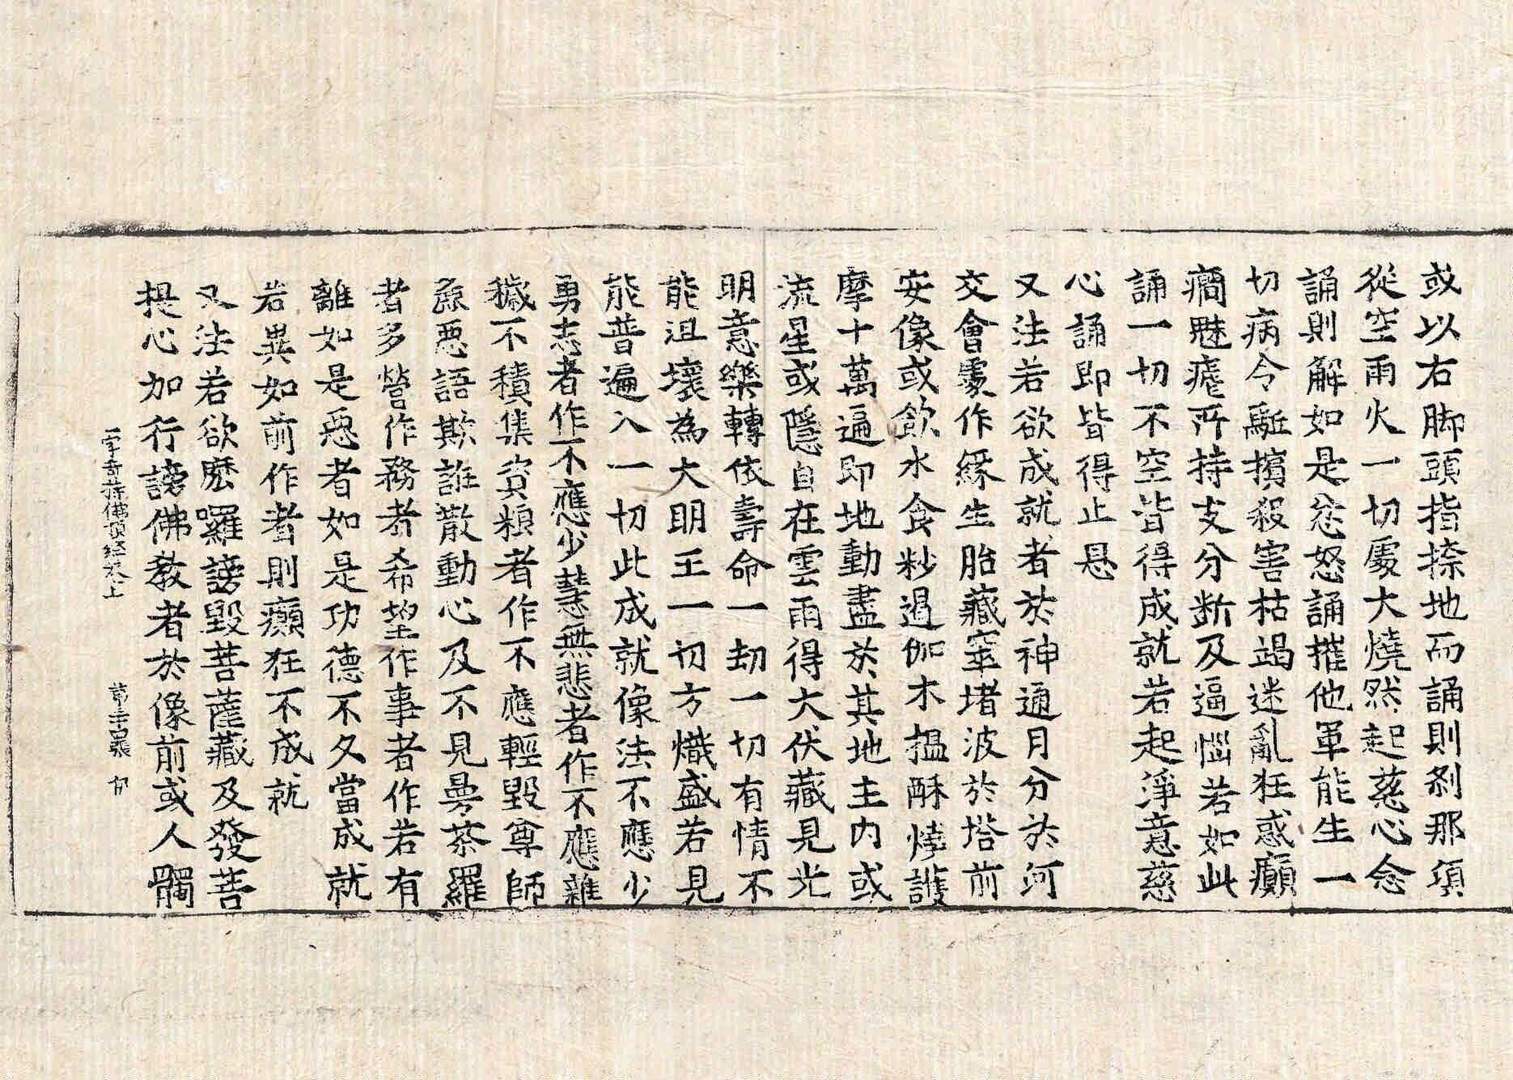 或以右脚頭指捺地而誦則剎那頃
從空雨火一切處大燒然起慈心念
誦則解如是忿怒誦摧他軍能生一
切病令驅擯殺害枯竭迷亂狂惑癲
癎魅瘧所持支分断及逼惱若如此
誦一切不空皆得成就若起淨意慈
心誦即皆得止息
又法若欲成就者於神通月分於河
交會處作緣生胎藏窣堵波於塔前
安像或飲水食麨遏伽木搵酥燒護
摩十萬遍即地動盡於其地主內或
流星或隱自在雲雨得大伏藏見光
明意樂轉依壽命一劫一切有情不
能沮壞為大明王一切方熾盛若見
能普遍入一切此成就像法不應少
勇志者作不應少慧無悲者作不應雜
穢不積集資糧者作不應輕毀尊師
麁惡語欺誑散動心及不見曼荼羅
者多營作務者希望作事者作若有
離如是惡者如是功德不久當成就
若異如前作者則癲狂不成就
又法若欲麼囉謗毀菩薩藏及發菩
提心加行謗佛教者於像前或人髑
一字奇特佛頂経巻上